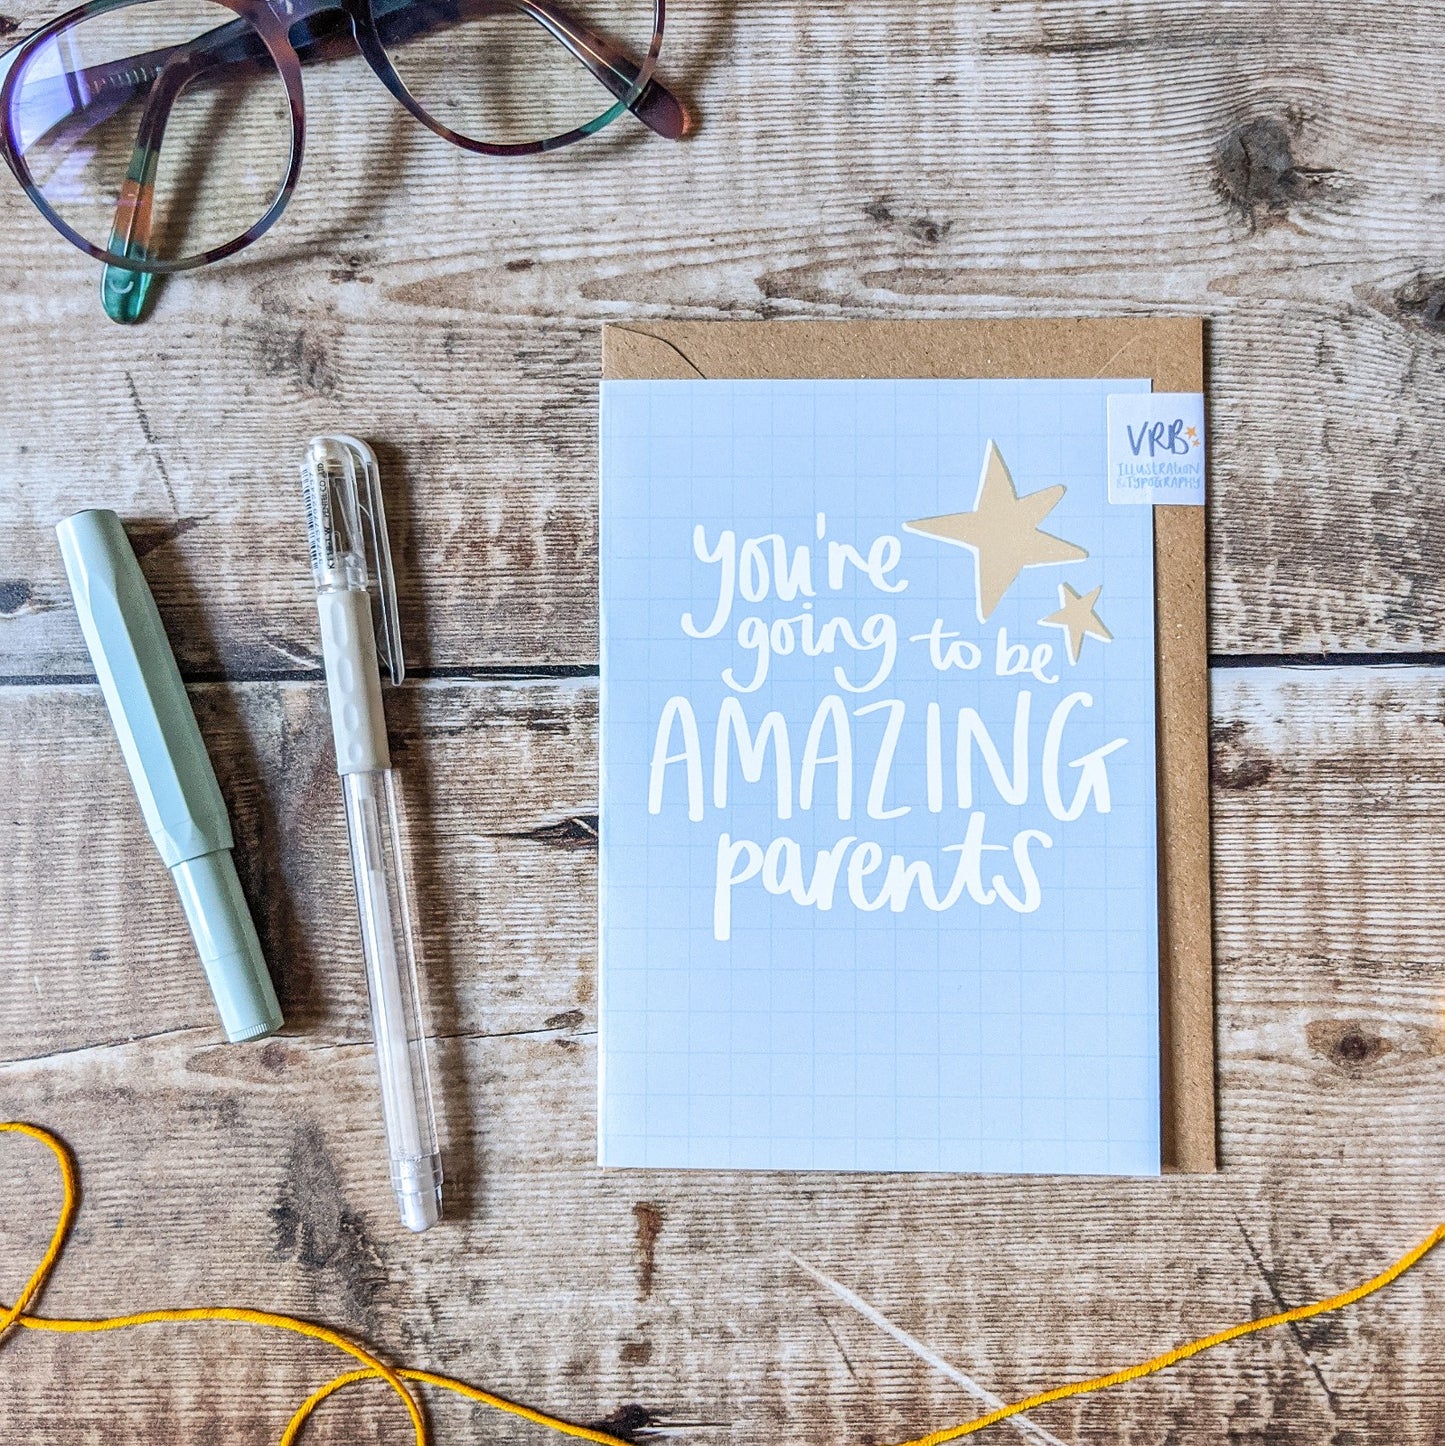 VRB
ILLUSTRATION
& TYPOGRAPHY
you're
going to be
AMAZING
parents